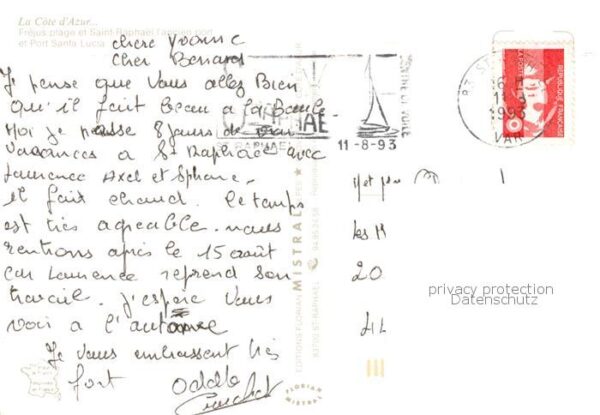 La Côte d'Azur...
Fréjus plage et Saint-Raphaël l'ancien port
et Port Santa Lucia
chère Yvonne
cher Bernard
Je pense que Vous allez Bien
qu'il fait Beau a la Baule
Moi je passe 8 jours de
Vacances a St Raphael avec
Laurence Axel et
il fait chaud. le temps
est très agreable. nous
rentrons après le 15 août
car Laurence reprend son
travail. J'espère Vous
voir a l'automne
Je Vous embrassent très
fort Odette
11-8-93
1993
VAR
RÉPUBLIQUE FRANÇAISE
EDITIONS FLORIAN MISTRAL
83700 ST-RAPHAEL
FLORIAN MISTRAL
Mr et Mme
les
20
privacy protection
Datenschutz